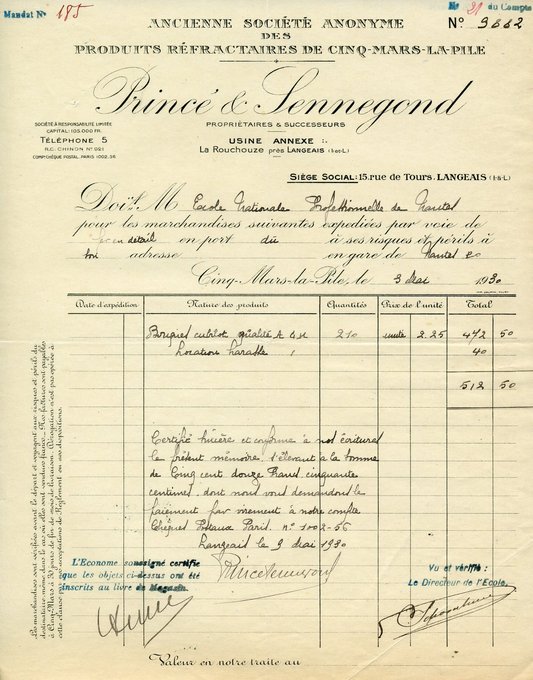 Mandat No 185
No 21 du Compte
ANCIENNE SOCIÉTÉ ANONYME
DES
PRODUITS RÉFRACTAIRES DE CINQ-MARS-LA-PILE
No 9882
Princé & Sennegond
PROPRIÉTAIRES & SUCCESSEURS
SOCIÉTÉ A RESPONSABILITÉ LIMITÉE
CAPITAL: 105.000 FR.
TÉLÉPHONE 5
R.C. CHINON No 921
COMPT CHÈQUE POSTAL, PARIS 1002.56
USINE ANNEXE :
La Rouchouze près LANGEAIS (I-et-L)
SIÈGE SOCIAL: 15, rue de Tours, LANGEAIS (I-&-L)
Doivt M Ecole Nationale Professionnelle de Nantes
pour les marchandises suivantes expédiées par voie de
fer en détail en port dû à ses risques et périls à
son adresse en gare de Nantes
Cinq-Mars-la-Pile, le 3 Mai 1930
Date d'expédition Nature des produits Quantités Prix de l'unité Total
Briques cubilot qualité A 210 unité 2.25 472 50
Location harasse 40
512 50
Certifié sincère et conforme à nos écritures
le présent mémoire s'élevant à la somme
de Cinq cent douze francs cinquante
centimes, dont nous vous demandons le
paiement par virement à notre compte
Chèques Postaux Paris. no 1002-56
Langeais le 9 Mai 1930
L'Econome soussigné certifie
que les objets ci-dessus ont été
inscrits au livre de Magasin.
Vu et vérifié :
Le Directeur de l'Ecole,
Valeur en notre traite au